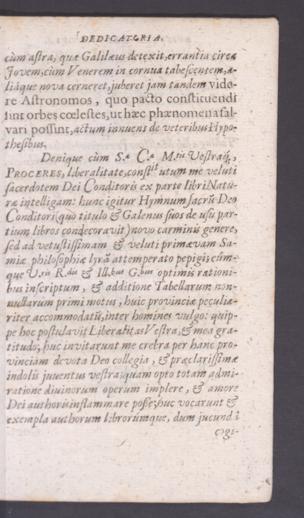 DEDICATORIA.
cùm astra, quæ Galilæus detexit, errantia circa
Jovem; cùm Venerem in cornua tabescentem, a-
liáque nova cerneret, juberet jam tandem vide-
re Astronomos, quo pacto constituendi
sint orbes cœlestes, ut hæc phænomena sal-
vari possint, actum innuens de veteribus Hypo-
thesibus.
Denique cùm S.æ C.æ M.tis Vestraq́;,
PROCERES, liberalitate, constitutum me veluti
sacerdotem Dei Conditoris ex parte libri Natu-
ræ intelligam: hunc igitur Hymnum sacrũ Deo
Conditori (quo titulo & Galenus suos de usu par-
tium libros condecoravit) novo carminis genere,
sed ad vetustissimam & veluti primævam Sa-
miæ philosophiæ lyrã attemperato pepigi: cùm-
que V.ris R.dis & Ill.bus G.bus optimis rationi-
bus inscriptum, & additione Tabellarum non-
nullarum primi motus, huic provinciæ peculia-
riter accommodatũ, inter homines vulgo: quip-
pe hoc postulavit Liberalitas Vestra, & mea gra-
titudo; huc invitarunt me crebra per hanc pro-
vinciam devota Deo collegia, & præclarissimæ
indolis juventus vestra; quam opto totam admi-
ratione divinorum operum implere, & amore
Dei authoris inflammare posse; huc vocarunt &
exempla authorum librorumque, dum jucundi